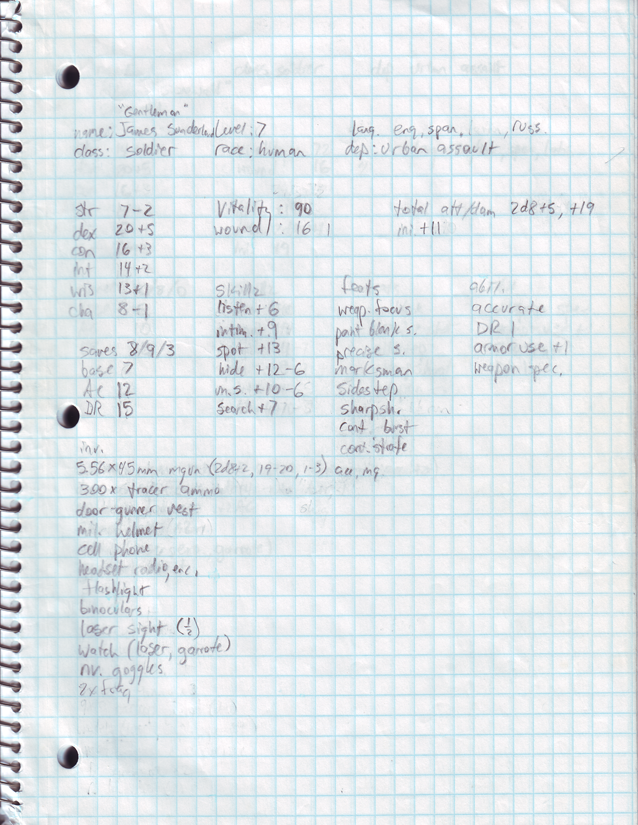 "Gentleman"
name: James Sunderland level: 7 lang. eng, span, russ.
class: soldier race: human dep: urban assault
str 7-2 Vitality: 90 total att/dam 2d8+5, +19
dex 20+5 wound: 16 ini +11
con 16+3
int 14+2
wis 13+1 skillz feats abil.
cha 8-1 listen +6 weap. focus accurate
intim. +9 point blank s. DR 1
saves 8/9/3 spot +13 precise s. armor use +1
base 7 hide +12-6 marksman weapon spec.
AC 12 m.s. +10-6 sidestep
DR 15 search +7 sharpsh.
cont. burst
cont. strafe
inv.
5.56x45mm mgun (2d8+2, 19-20, 1-3) acc, mg.
300x tracer ammo
door-gunner vest
mil. helmet
cell phone
headset radio, enc.
flashlight
binoculars
laser sight (½)
watch (laser, garrote)
nv. goggles
2x frag